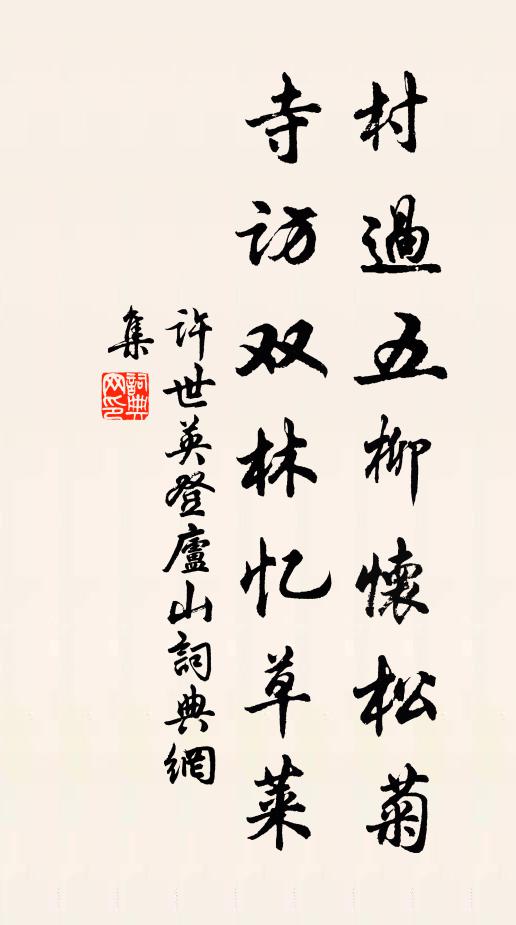 村過五柳懷松菊
寺访双林忆草莱
许世英登廬山詞典網
集
詞典
网印